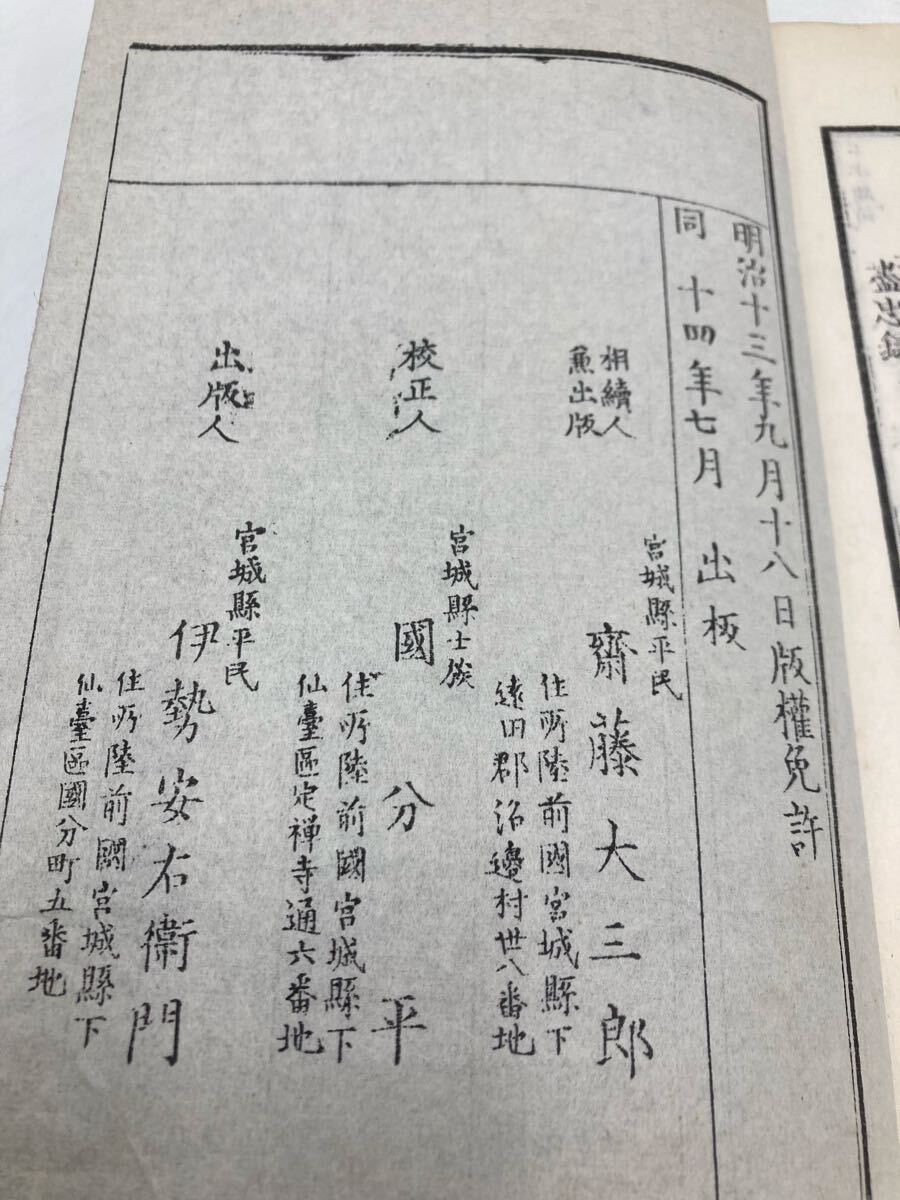 盡忠錄
明治十三年九月十八日版權免許
同 十四年七月 出板
相續人
兼出版
宮城縣平民
齋藤大三郎
住所陸前國宮城縣下
遠田郡沼邊村卅八番地
校正人
宮城縣士族
國分平
住所陸前國宮城縣下
仙臺區定禅寺通六番地
出版人
宮城縣平民
伊勢安右衛門
住所陸前國宮城縣下
仙臺區國分町五番地